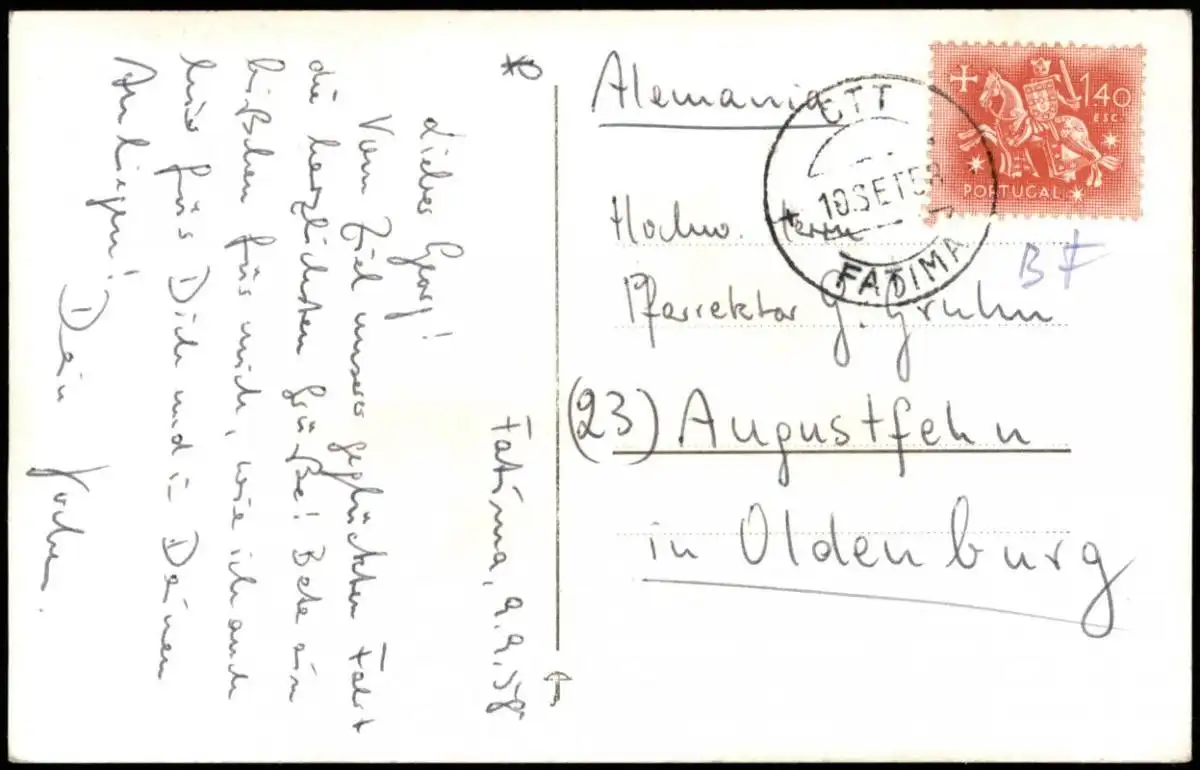 Fatima, 9.9.58
Lieber Georg!
Vom Ziel unserer geglückten Fahrt
die herzlichsten Grüße! Bete ein
bißchen für mich, wie ich auch
hier für Dich und in Deinen
Anliegen! Dein
Alemania
Hochw. Herrn
Pfarrektor G. Gruhn
(23) Augustfehn
in Oldenburg
CTT
10 SET 58
FATIMA
1$40
ESC.
PORTUGAL
BF